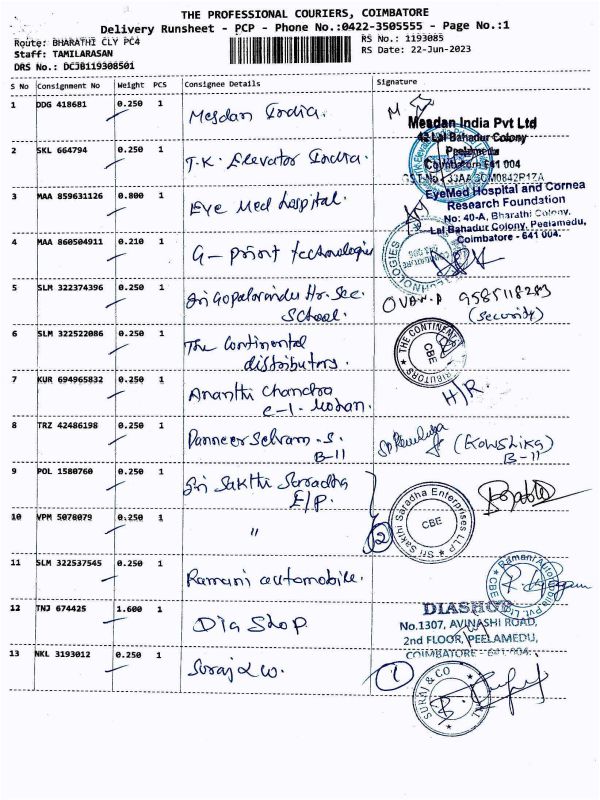 THE PROFESSIONAL COURIERS, COIMBATORE
Delivery Runsheet - PCP - Phone No.:0422-3505555 - Page No.:1
Route: BHARATHI CLY PC4
RS No.: 1193085
Staff: TAMILARASAN
RS Date: 22-Jun-2023
DRS No.: DCJB119308501
S No Consignment No Weight PCS Consignee Details Signature
1 DDG 418681 0.250 1 Mesdan India.
Mesdan India Pvt Ltd
42 Lal Bahadur Colony
Peelamedu
Coimbatore 641 004
2 SKL 664794 0.250 1 T.K. Elevator India.
3 MAA 859631126 0.800 1 Eye Med hospital.
EyeMed Hospital and Cornea
Research Foundation
No: 40-A, Bharathi Colony,
Lal Bahadur Colony, Peelamedu,
Coimbatore - 641 004.
4 MAA 860504911 0.210 1 G- priori technologies
TECHNOLOGIES
COIMBATORE
5 SLM 322374396 0.250 1
Hr. Sec.
School.
9585118283
(Security)
6 SLM 322522086 0.250 1 The Continental
distributors.
THE CONTINENTAL
CBE
7 KUR 694965832 0.250 1 Ananthi Chandra
C-1. Mohan.
H/R.
8 TRZ 42486198 0.250 1 Panneer Selvam .S.
B-11
(Kowslika)
B-11
9 POL 1580760 0.250 1 Sri Sakthi Saradha
E/P.
Sri Sakthi Saradha Enterprises LLP
CBE
10 VPM 5078079 0.250 1 "
2
11 SLM 322537545 0.250 1 Ramani automobile.
12 TNJ 674425 1.600 1 Dia Shop
DIASHOP
No.1307, AVINASHI ROAD,
2nd FLOOR, PEELAMEDU,
COIMBATORE - 641 004.
13 NKL 3193012 0.250 1 Suraj & co.
1
SURAJ & CO